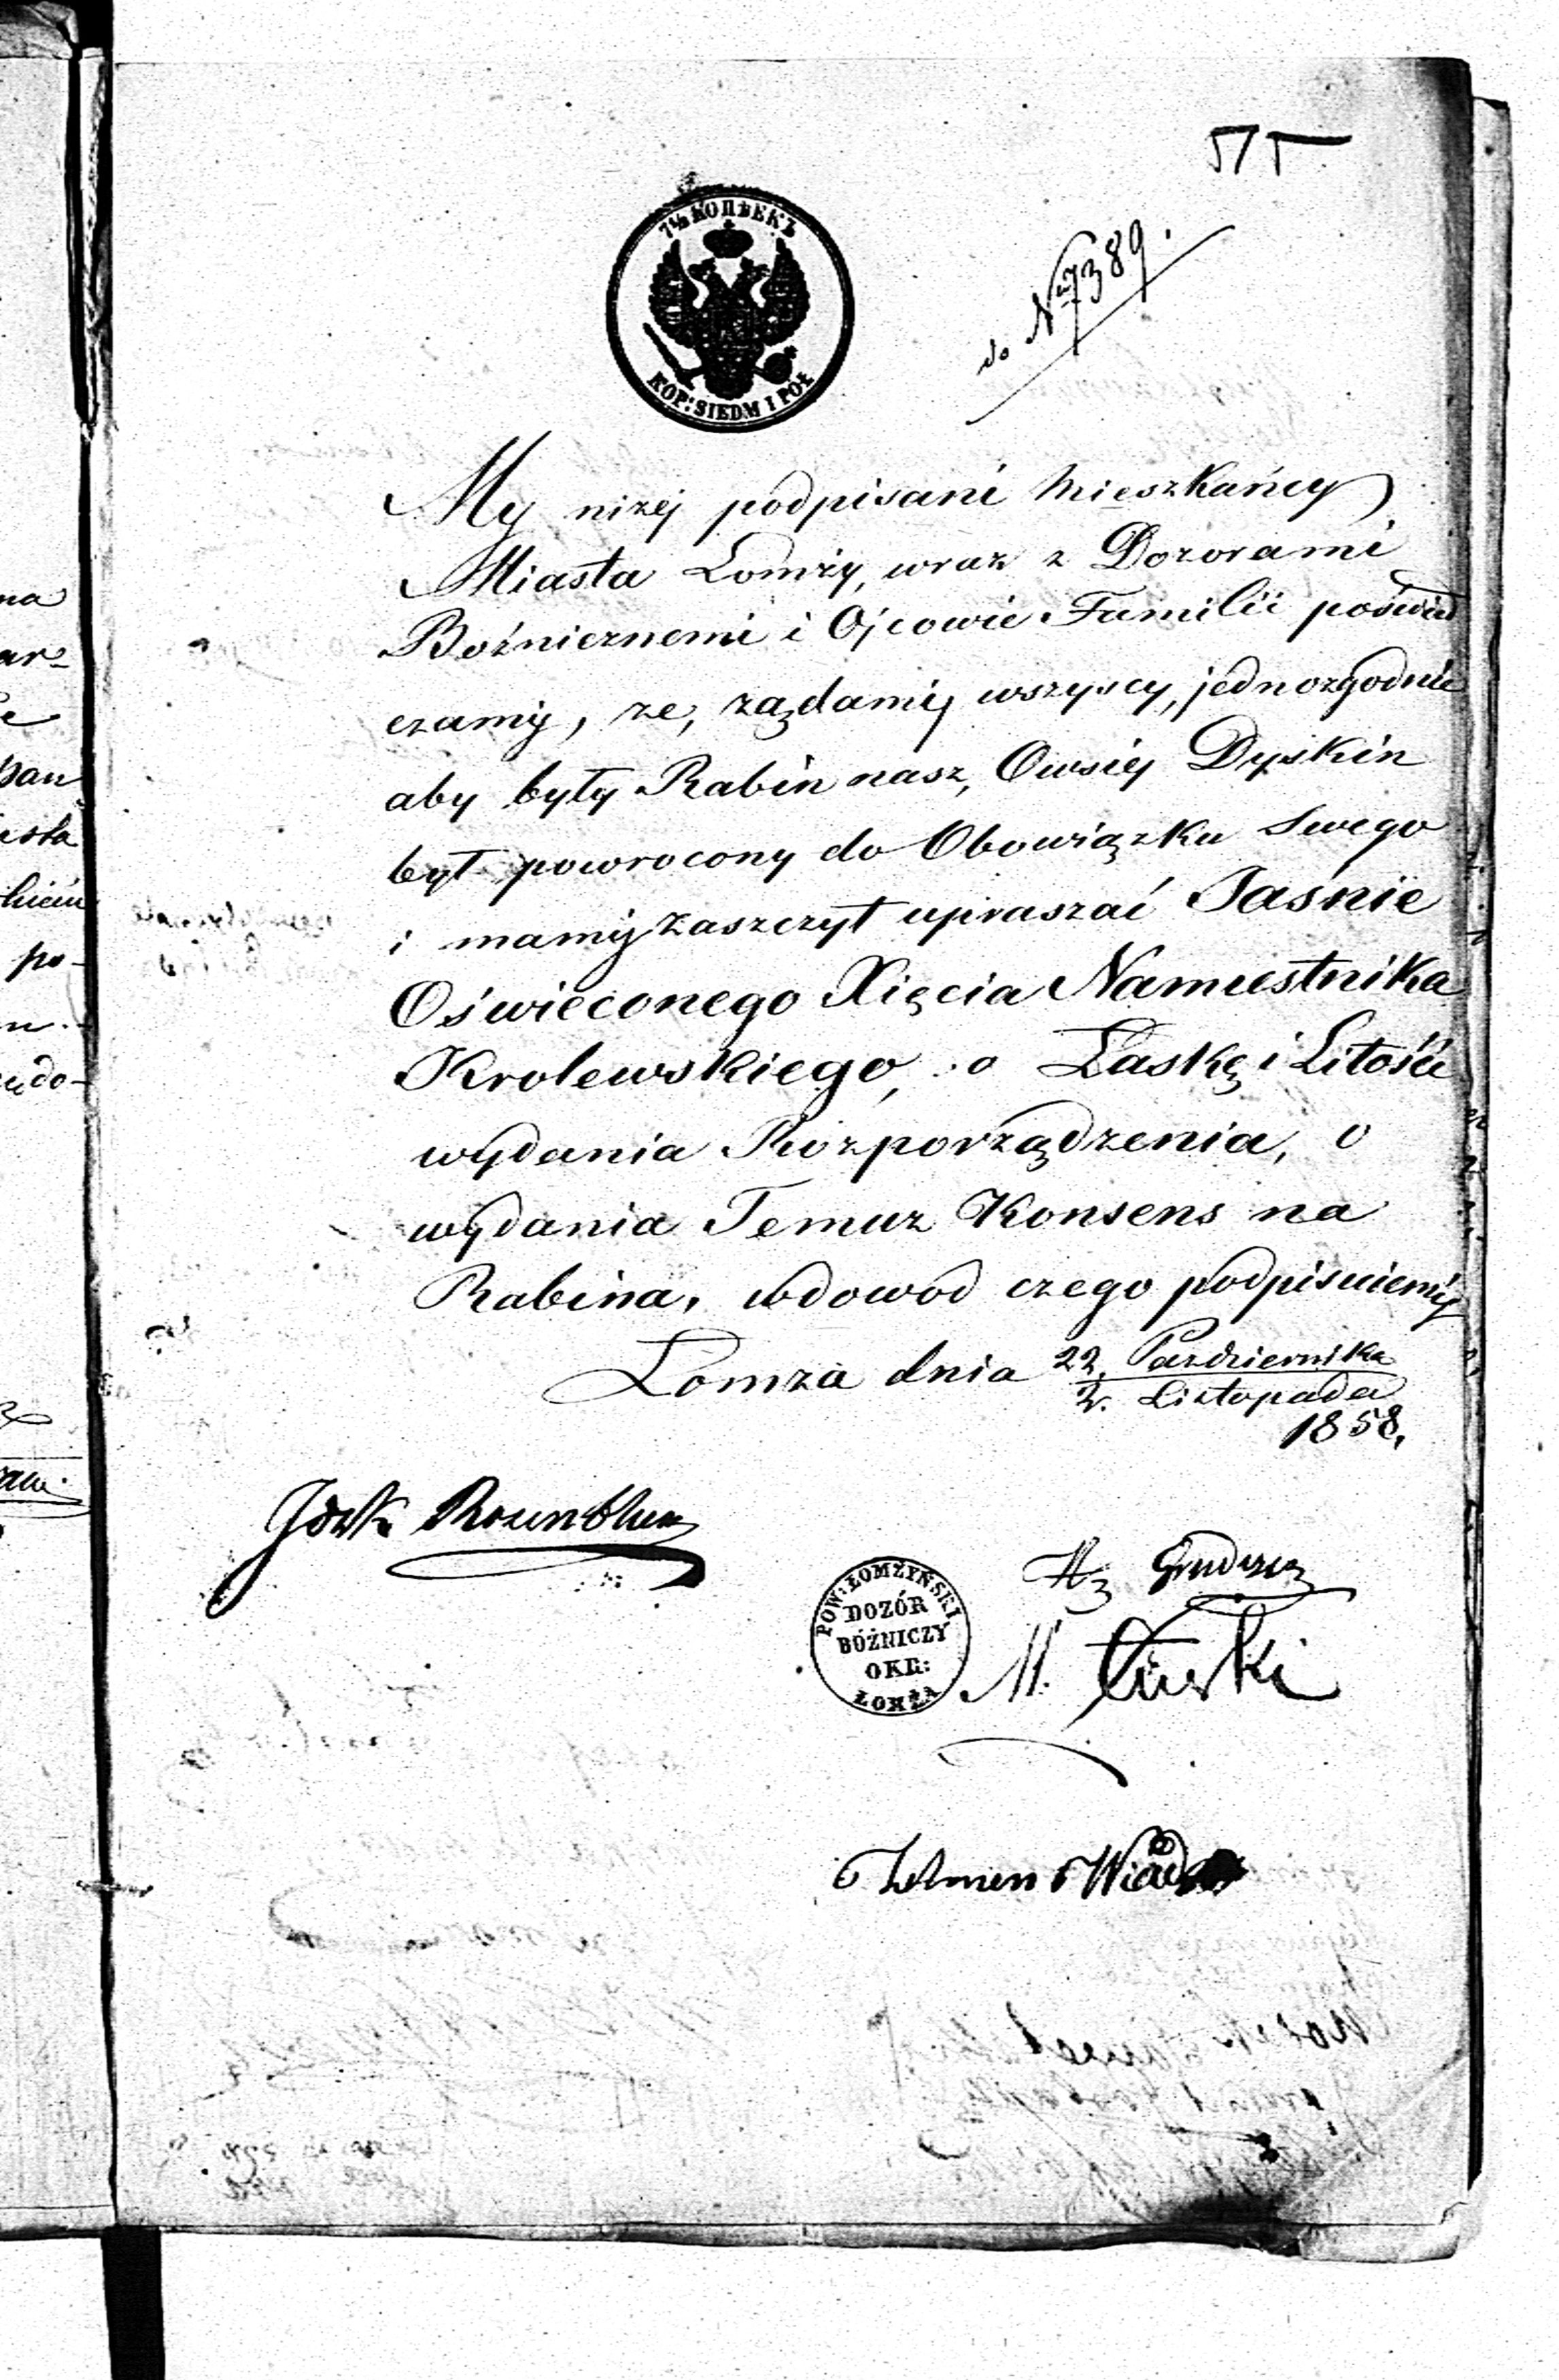 do № 7389.
7½ КОПѢЕКЪ
KOP: SIEDM I PÓŁ
My niżej podpisani Mieszkańcy
Miasta Łomży, wraz z Dozorami
Bożnicznemi i Ojcowie Familii poświad
czamy, że, żądamy wszyscy, jednozgodnie
aby były Rabin nasz, Owsiey Dyskin
był powrocony do Obowiązku Swego
i mamy zaszczyt upraszać Jaśnie
Oświeconego Xięcia Namiestnika
Krolewskiego, o Łaskę i Litość
wydania Rozporządzenia, o
wydania Temuz Konsens na
Rabina, wdowod czego podpisuiemy
Łomza dnia 22. Pazdziernika
2. Listopada
1858,
Rosenblum
POW: ŁOMŻYŃSKI
DOZÓR
BÓŻNICZY
OKR:
ŁOMŻA
M.